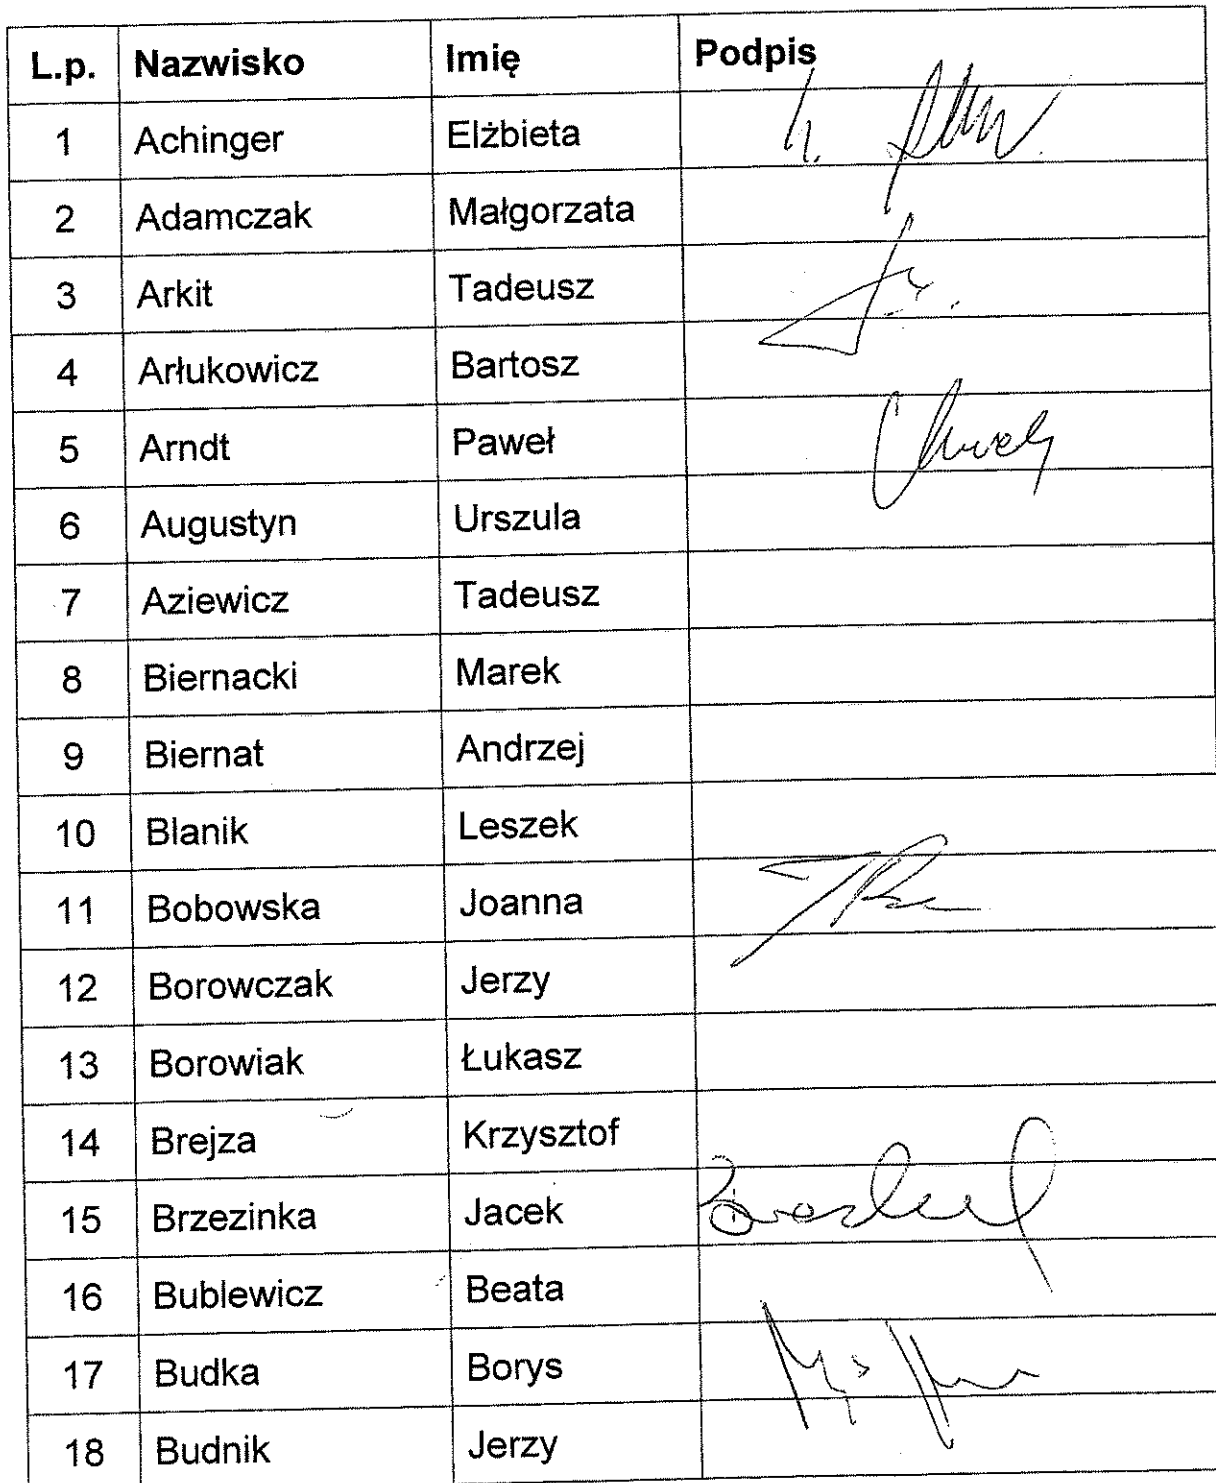 L.p. Nazwisko Imię Podpis
1 Achinger Elżbieta
2 Adamczak Małgorzata
3 Arkit Tadeusz
4 Arłukowicz Bartosz
5 Arndt Paweł
6 Augustyn Urszula
7 Aziewicz Tadeusz
8 Biernacki Marek
9 Biernat Andrzej
10 Blanik Leszek
11 Bobowska Joanna
12 Borowczak Jerzy
13 Borowiak Łukasz
14 Brejza Krzysztof
15 Brzezinka Jacek
16 Bublewicz Beata
17 Budka Borys
18 Budnik Jerzy